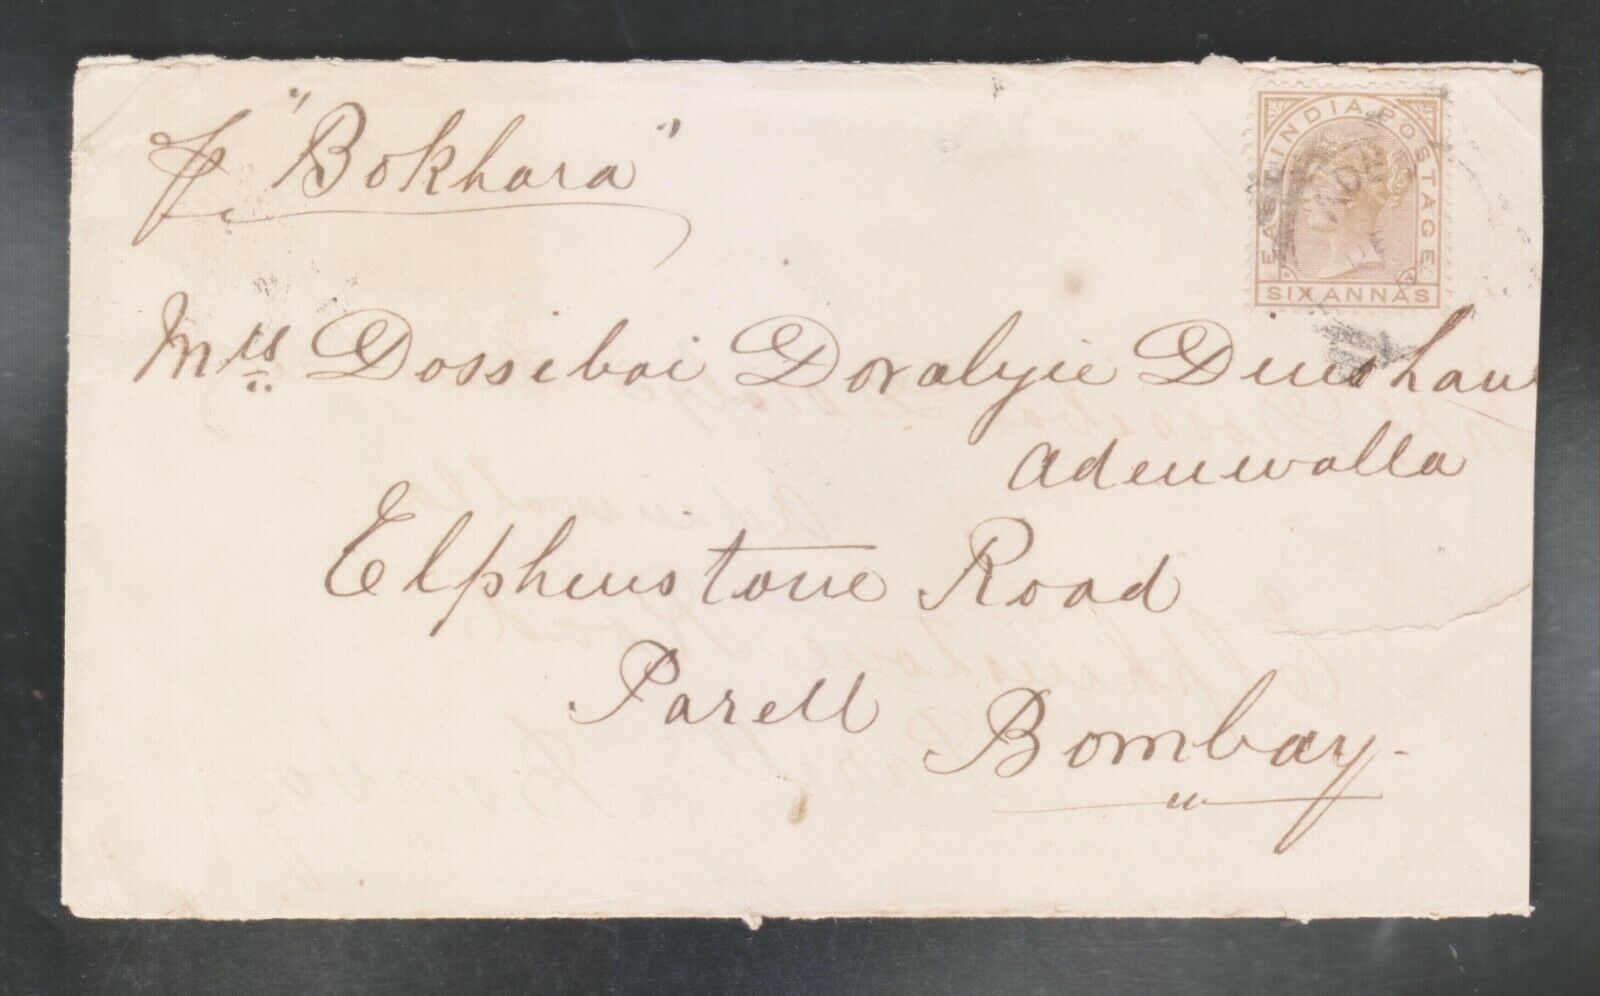 p "Bokhara"
EAST INDIA POSTAGE
SIX ANNAS
Mrs Dossibai Doralyie Dinshaw
Adenwalla
Elphinstone Road
Parell
Bombay